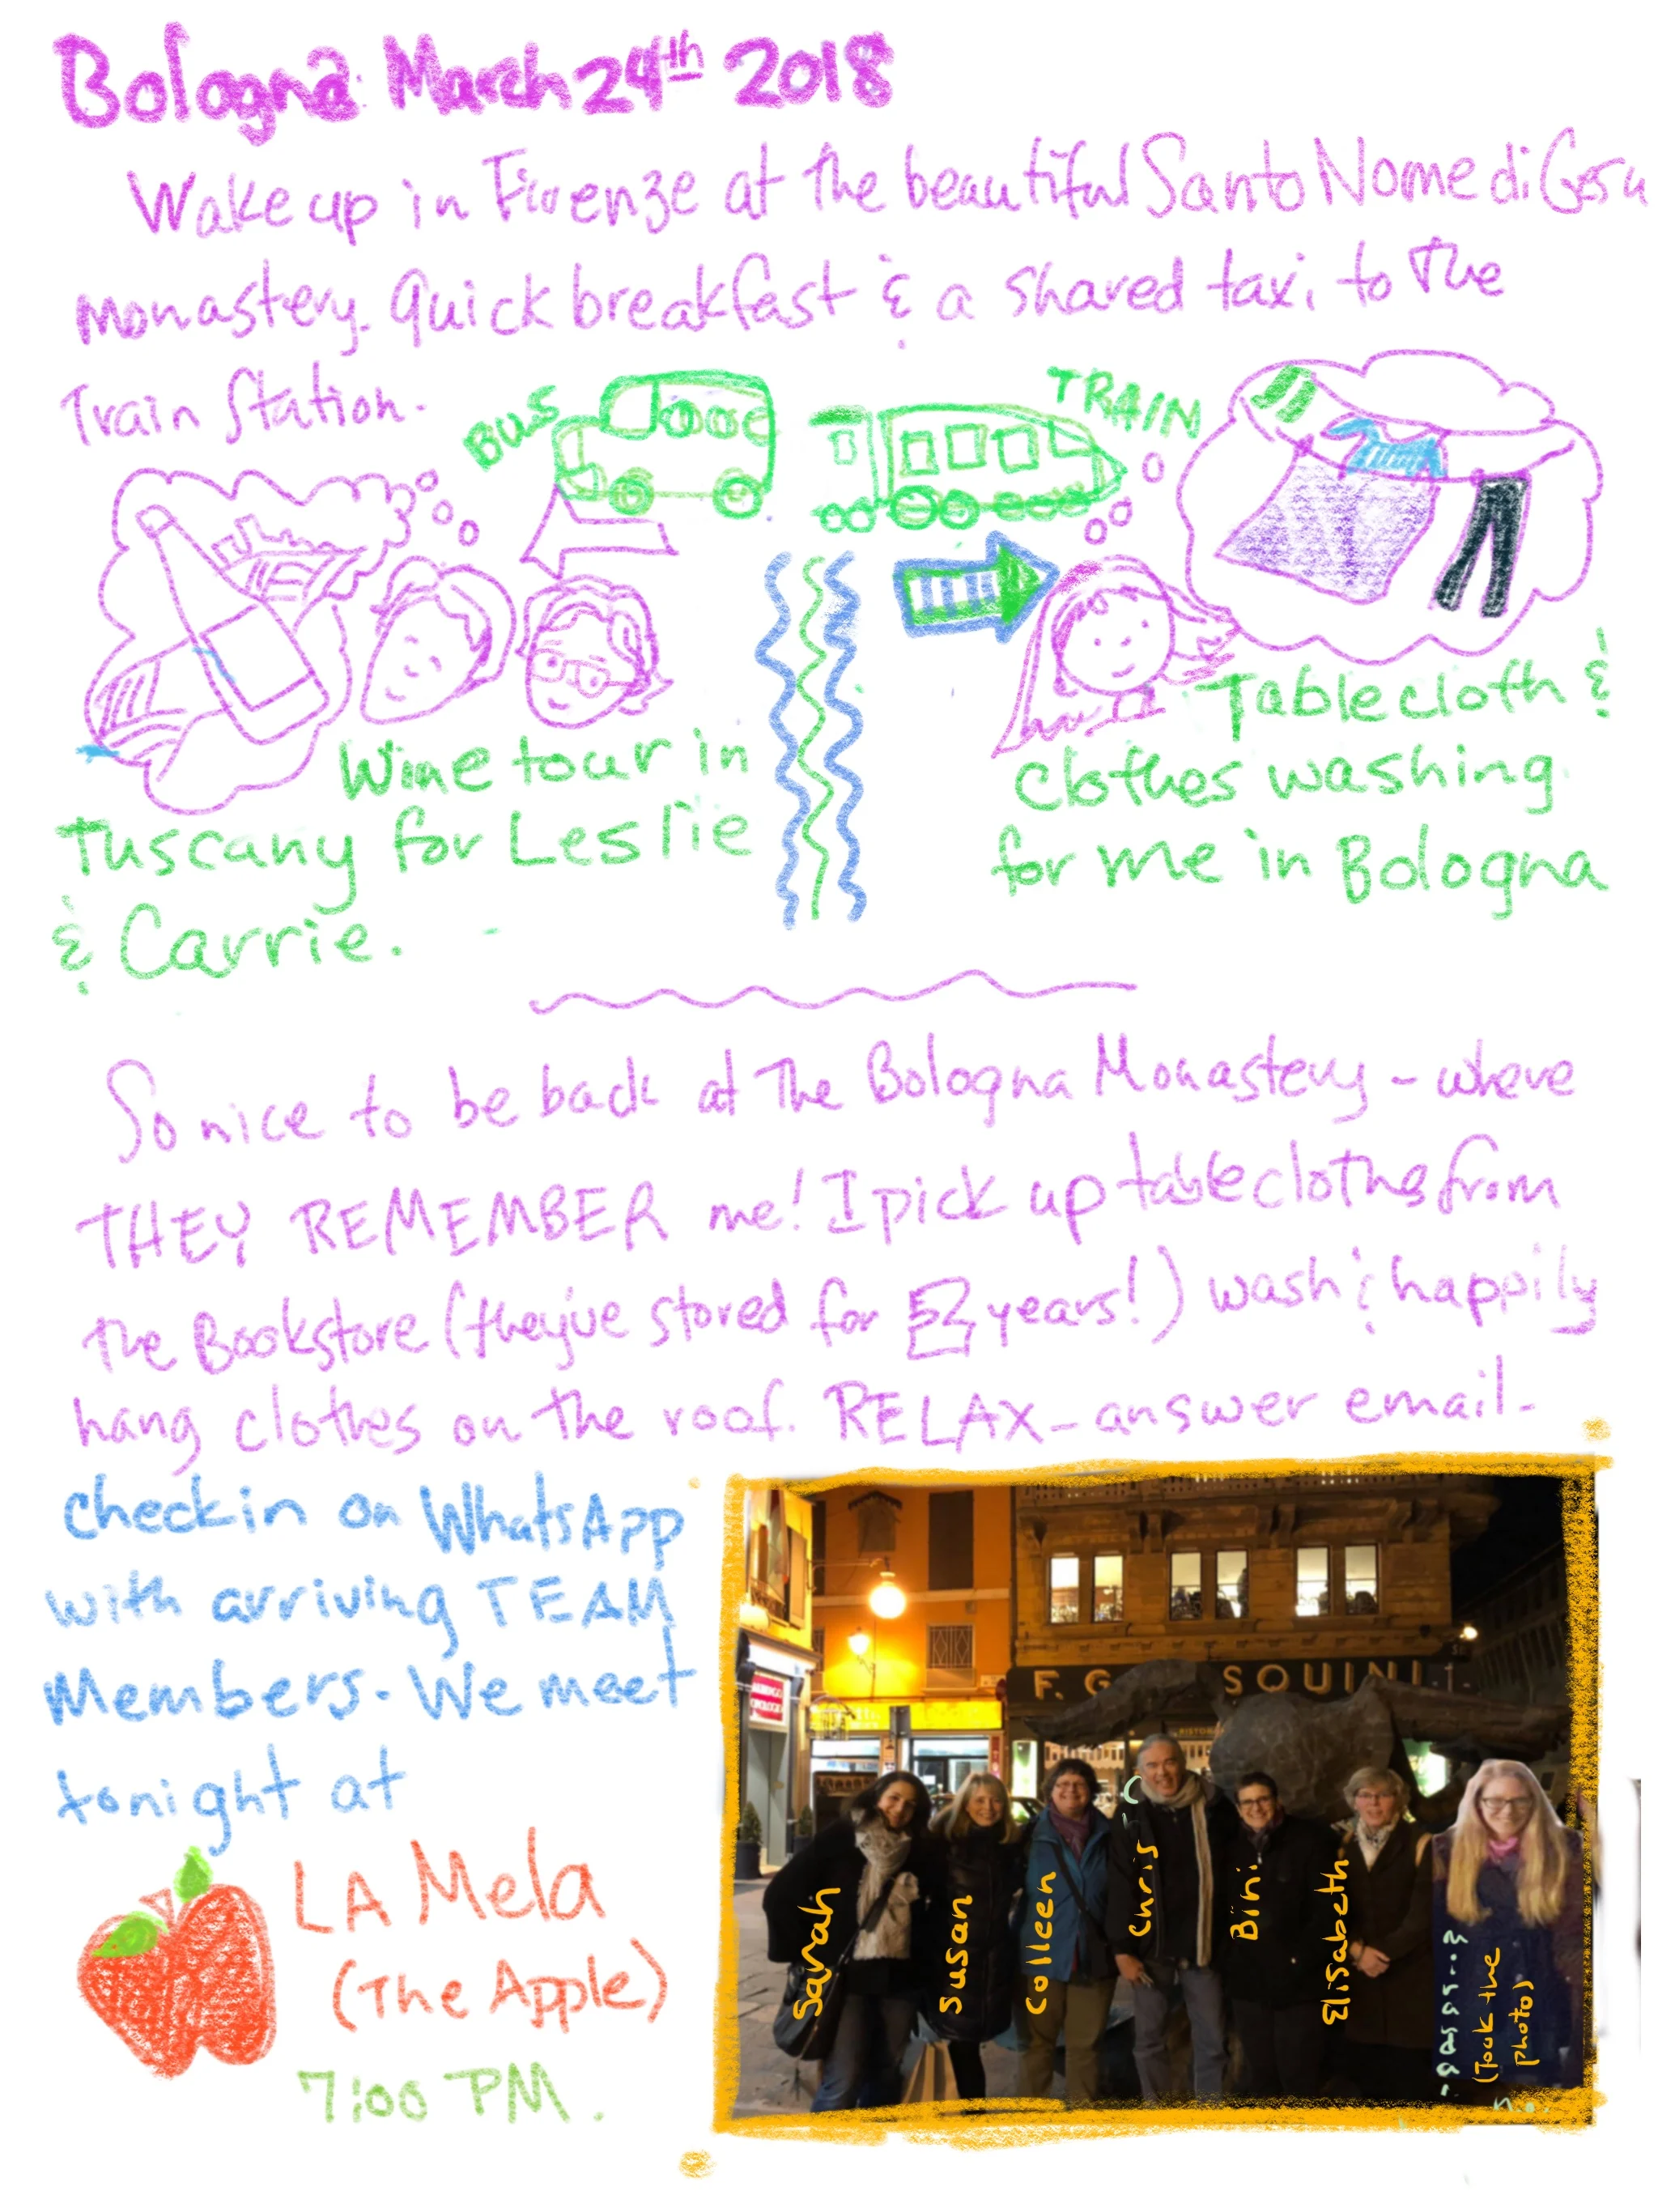 Bologna March 24th 2018
Wake up in Firenze at the beautiful Santo Nome di Gesu
monastery. Quick breakfast & a shared taxi to the
Train Station.
BUS
TRAIN
Wine tour in
Tuscany for Leslie
& Carrie.
Tablecloth &
clothes washing
for me in Bologna
So nice to be back at the Bologna Monastery - where
THEY REMEMBER me! I pick up tablecloths from
the Bookstore (they've stored for years!) wash & happily
hang clothes on the roof. RELAX - answer email -
checkin on WhatsApp
with arriving TEAM
Members. We meet
tonight at
LA Mela
(The Apple)
7:00 PM.
F. G SQUINI
Sarah
Susan
Colleen
Chris
Bini
Elisabeth
(Took the
photo)